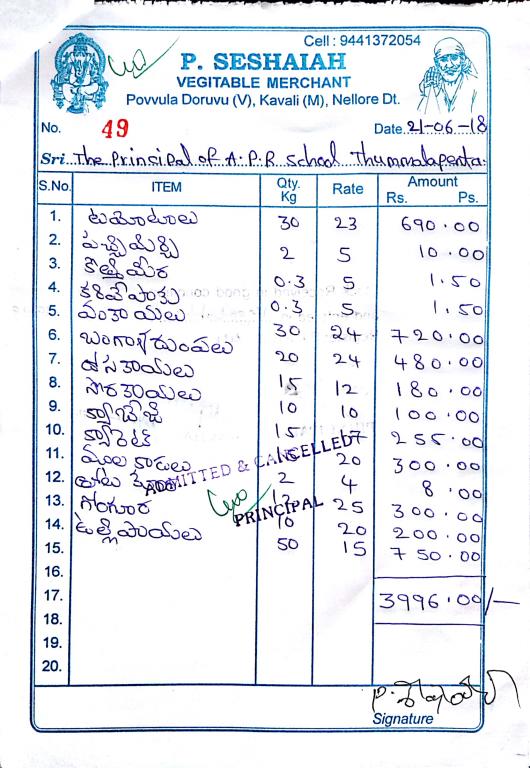 Cell : 9441372054
P. SESHAIAH
VEGITABLE MERCHANT
Povvula Doruvu (V), Kavali (M), Nellore Dt.
No. 49 Date. 21-06-18
Sri. The Prinsipal of A.P.R School Thummalapenta.
S.No. ITEM Qty. Kg Rate Amount Rs. Ps.
1. టమోటాలు 30 23 690.00
2. పచ్చిమిర్చి 2 5 10.00
3. కొత్తిమీర 0.3 5 1.50
4. కరివేపాకు 0.3 5 1.50
5. వంకాయలు 30 24 720.00
6. బంగాళదుంపలు 20 24 480.00
7. దోసకాయలు 15 12 180.00
8. సొరకాయలు 10 10 100.00
9. క్యాబేజి 15 17 255.00
10. క్యారెట్ 15 20 300.00
11. ములకాడలు 2 4 8.00
12. 12 25 300.00
13. గోంగూర 10 20 200.00
14. ఉల్లిపాయలు 50 15 750.00
15.
16.
17. 3996.00/-
18.
19.
20.
ADMITTED & CANCELLED
PRINCIPAL
Signature